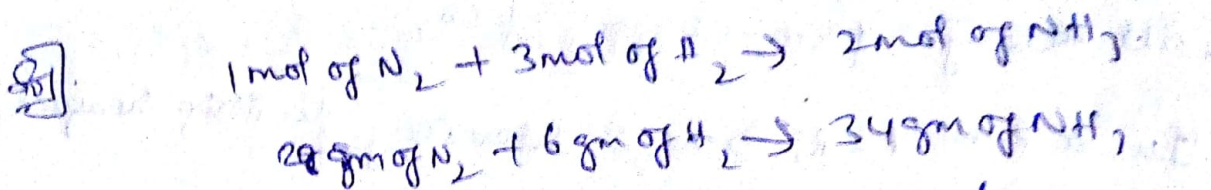 1 mol of N₂ + 3 mol of H₂ → 2 mol of NH₃
28 gm of N₂ + 6 gm of H₂ → 34 gm of NH₃.